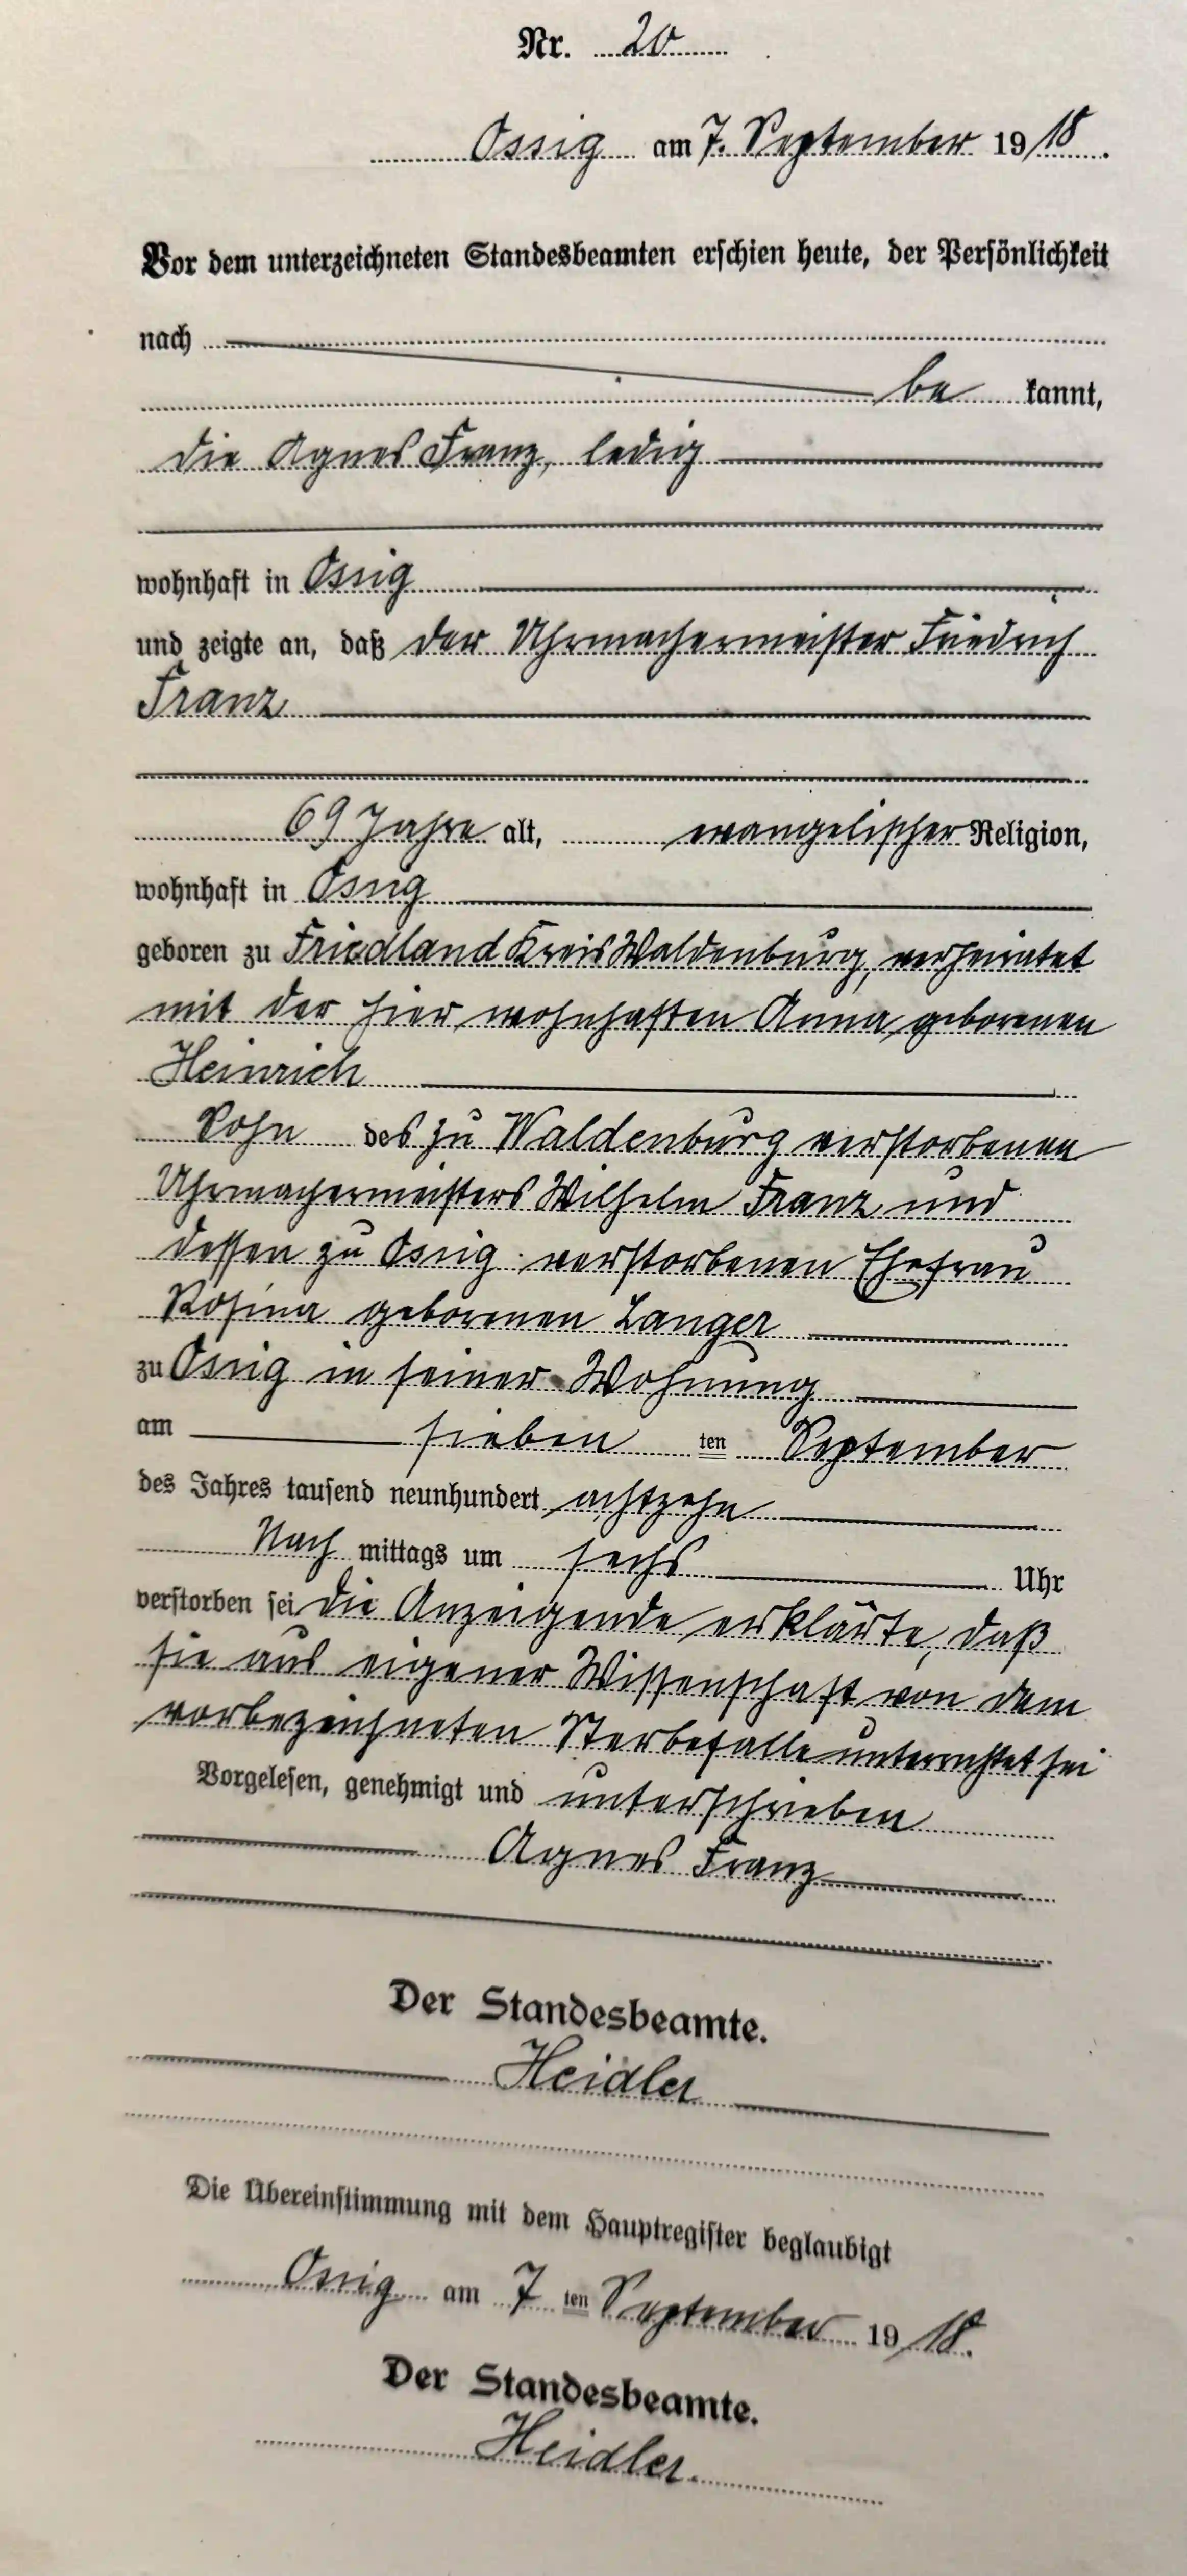 Nr. 20
Ossig am 7. September 1918.
Vor dem unterzeichneten Standesbeamten erschien heute, der Persönlichkeit
nach
be kannt,
die Agnes Franz, ledig
wohnhaft in Ossig
und zeigte an, daß der Uhrmachermeister Friedrich
Franz
69 Jahre alt, evangelischer Religion,
wohnhaft in Ossig
geboren zu Friedland Kreis Waldenburg, verheiratet
mit der hier wohnhaften Anna geborenen
Heinrich
Sohn des zu Waldenburg verstorbenen
Uhrmachermeisters Wilhelm Franz und
dessen zu Ossig verstorbenen Ehefrau
Rosina geborenen Langer
zu Ossig in seiner Wohnung
am sieben ten September
des Jahres tausend neunhundert achtzehn
Nach mittags um sechs Uhr
verstorben sei. Die Anzeigende erklärte, daß
sie aus eigener Wissenschaft von dem
vorbezeichneten Sterbefalle unterrichtet sei
Vorgelesen, genehmigt und unterschrieben
Agnes Franz
Der Standesbeamte.
Heidler
Die Übereinstimmung mit dem Hauptregister beglaubigt
Ossig am 7 ten September 1918.
Der Standesbeamte.
Heidler.